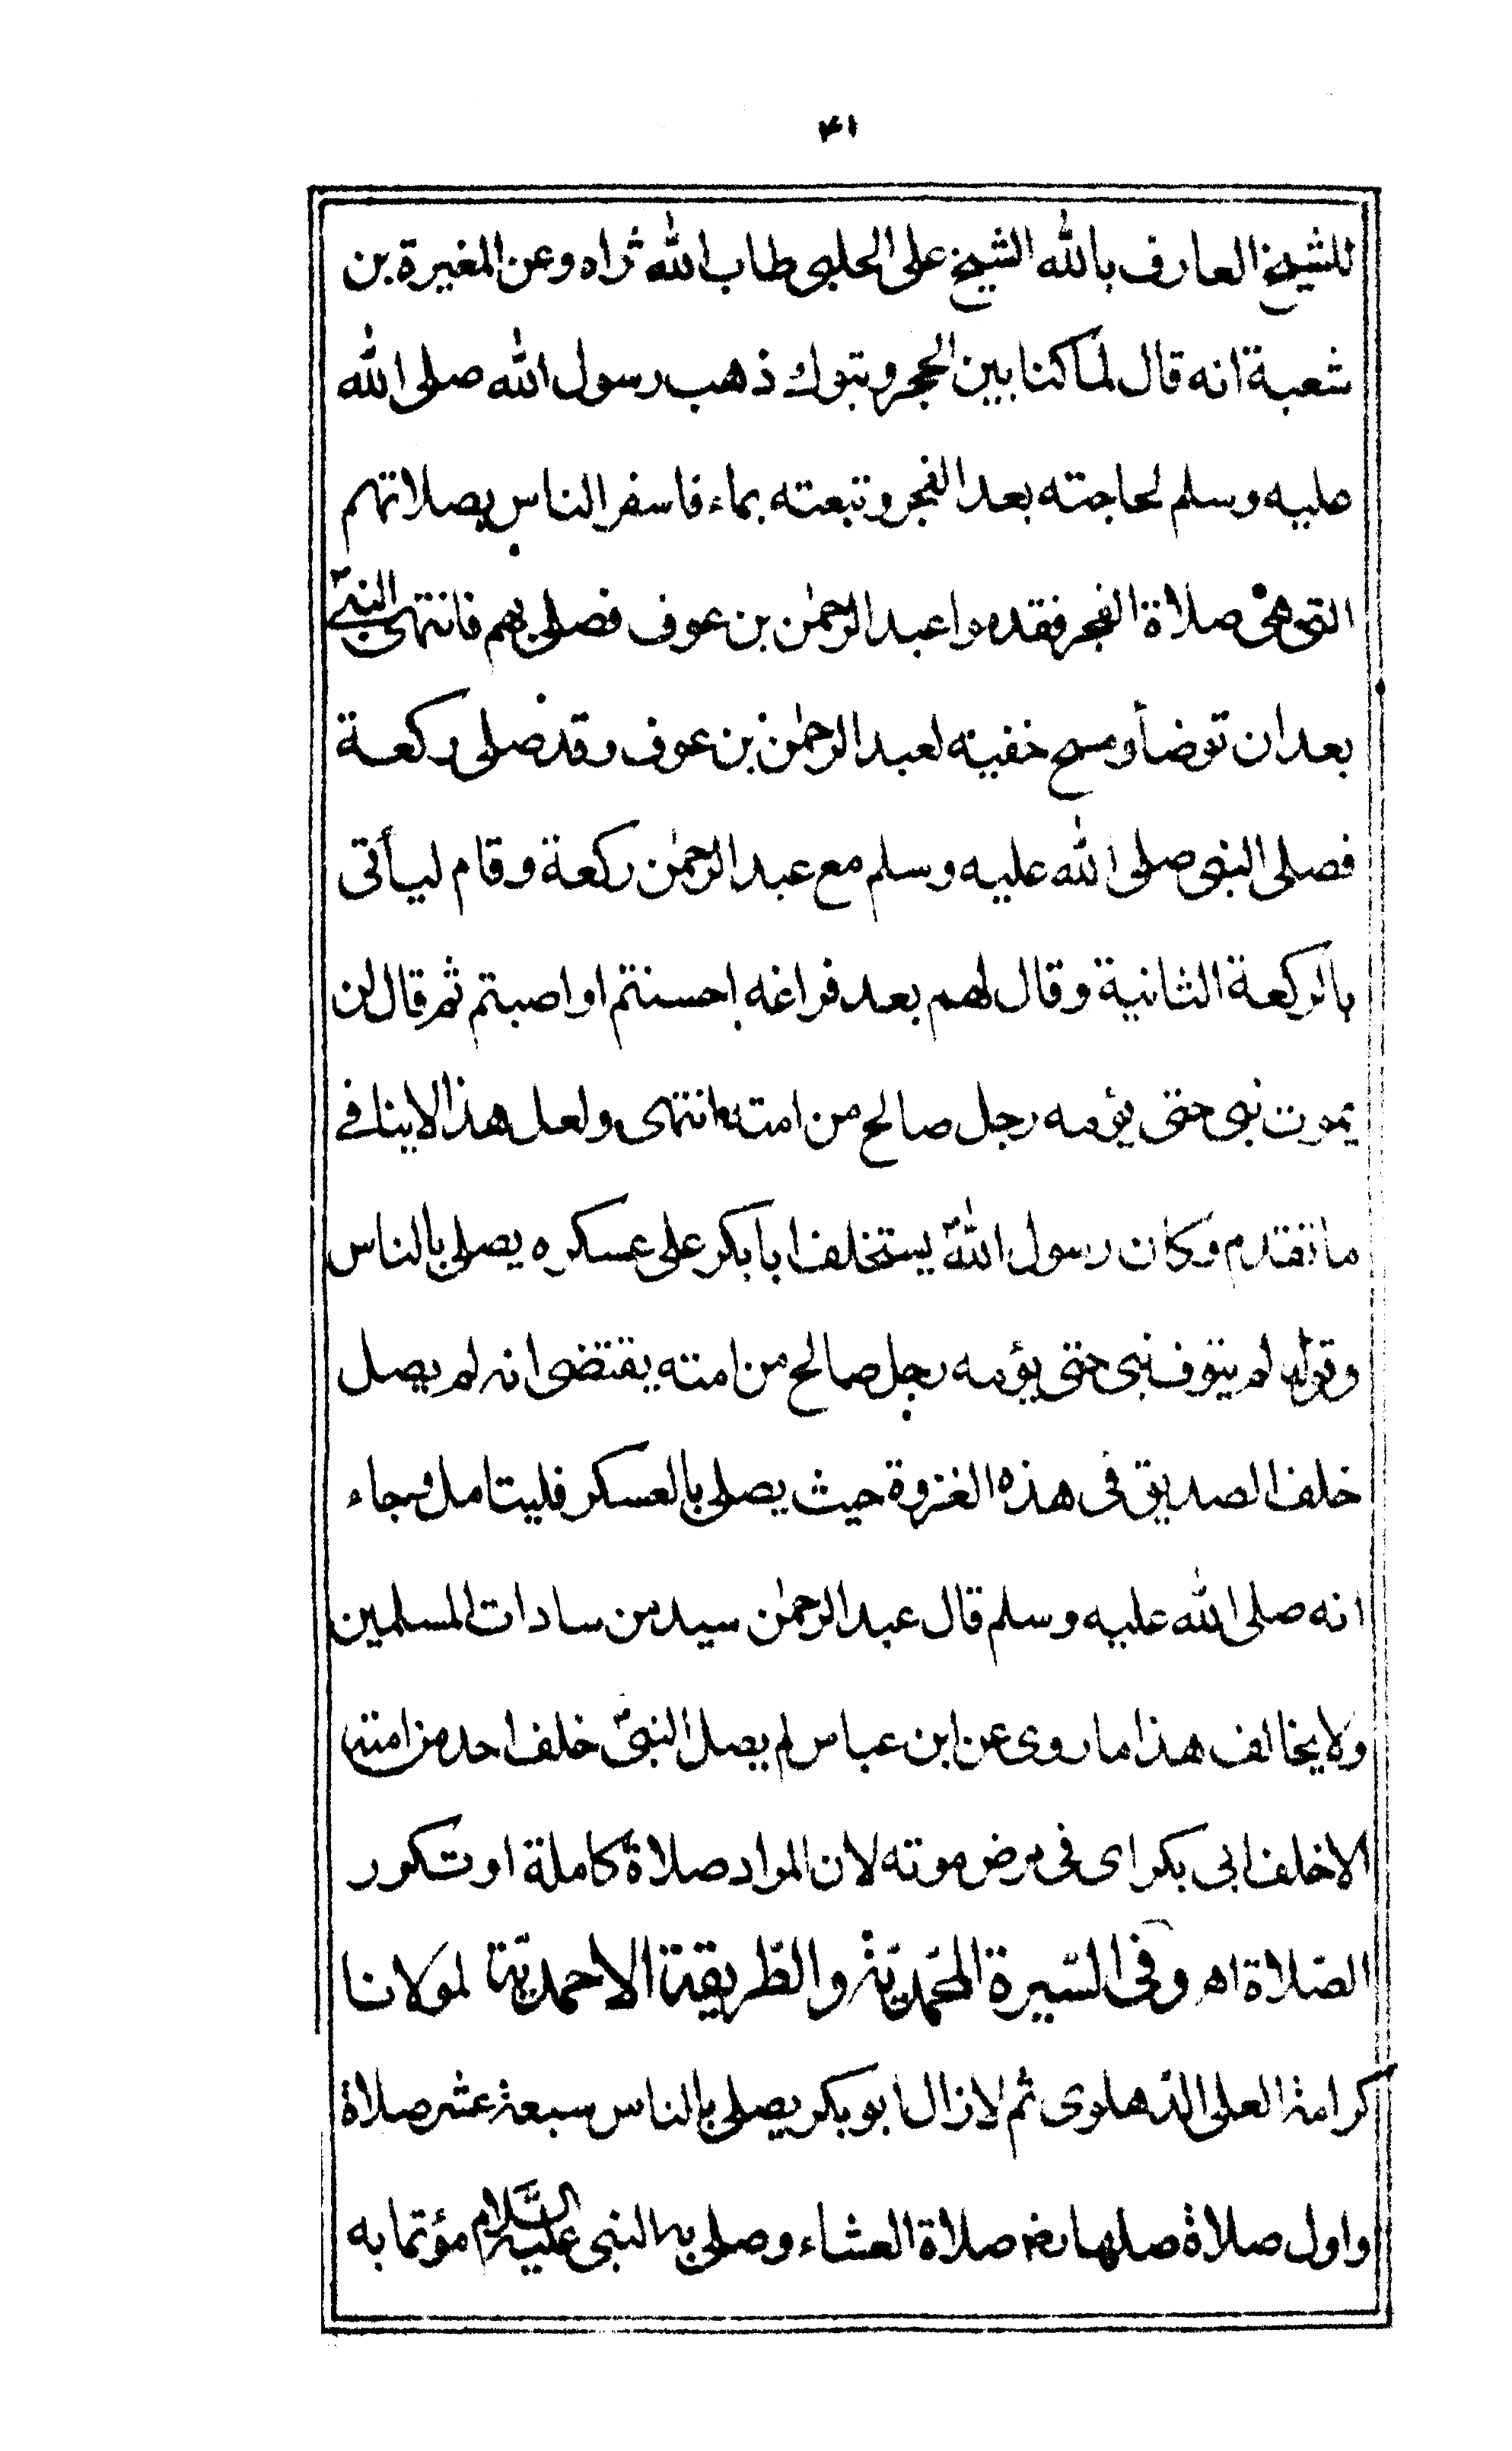 ۴۱
للشيخ العارف بالله الشيخ على الحلبى طاب الله ثراه وعن المغيرة بن
شعبة انه قال لما كنا بين الحجر وتبوك ذهب رسول الله صلى الله
عليه وسلم لحاجته بعد الفجر وتبعته بماء فاسفر الناس بصلاتهم
التى هى صلاة الفجر فقدموا عبد الرحمٰن بن عوف فصلى بهم فانتهى النبىؐ
بعد ان توضأ ومسح خفيه لعبد الرحمٰن بن عوف وقد صلى ركعة
فصلى النبى صلى الله عليه وسلم مع عبد الرحمٰن ركعة وقام ليأتى
بالركعة الثانية وقال لهم بعد فراغه احسنتم او اصبتم ثم قال لن
يموت نبى حتى يؤمه رجل صالح من امته انتهى ولعل هذا لا ينافى
ما تقدم وكان رسول اللهؐ يستخلف ابا بكر على عسكره يصلى بالناس
وقوله لم يتوف نبى حتى يؤمه رجل صالح من امته يقتضى انه لم يصل
خلف الصديق فى هذه الغزوة حيث يصلى بالعسكر فليتامل وجاء
انه صلى الله عليه وسلم قال عبد الرحمٰن سيد من سادات المسلمين
ولا يخالف هذا ما روى عن ابن عباس لم يصل النبىؐ خلف احد من امته
الا خلف ابى بكر اى فى مرض موته لان المراد صلاة كاملة او تكرر
الصّلاة اھ وفى السّيرة المحمّديّة والطّريقة الاحمديّة لمولانا
كرامة العلى الدّهلوى ثم لا زال ابو بكر يصلى بالناس سبعة عشر صلاة
واول صلاة صلها صلاة العشاء وصلى به النبى عليه السّلام مؤتما به